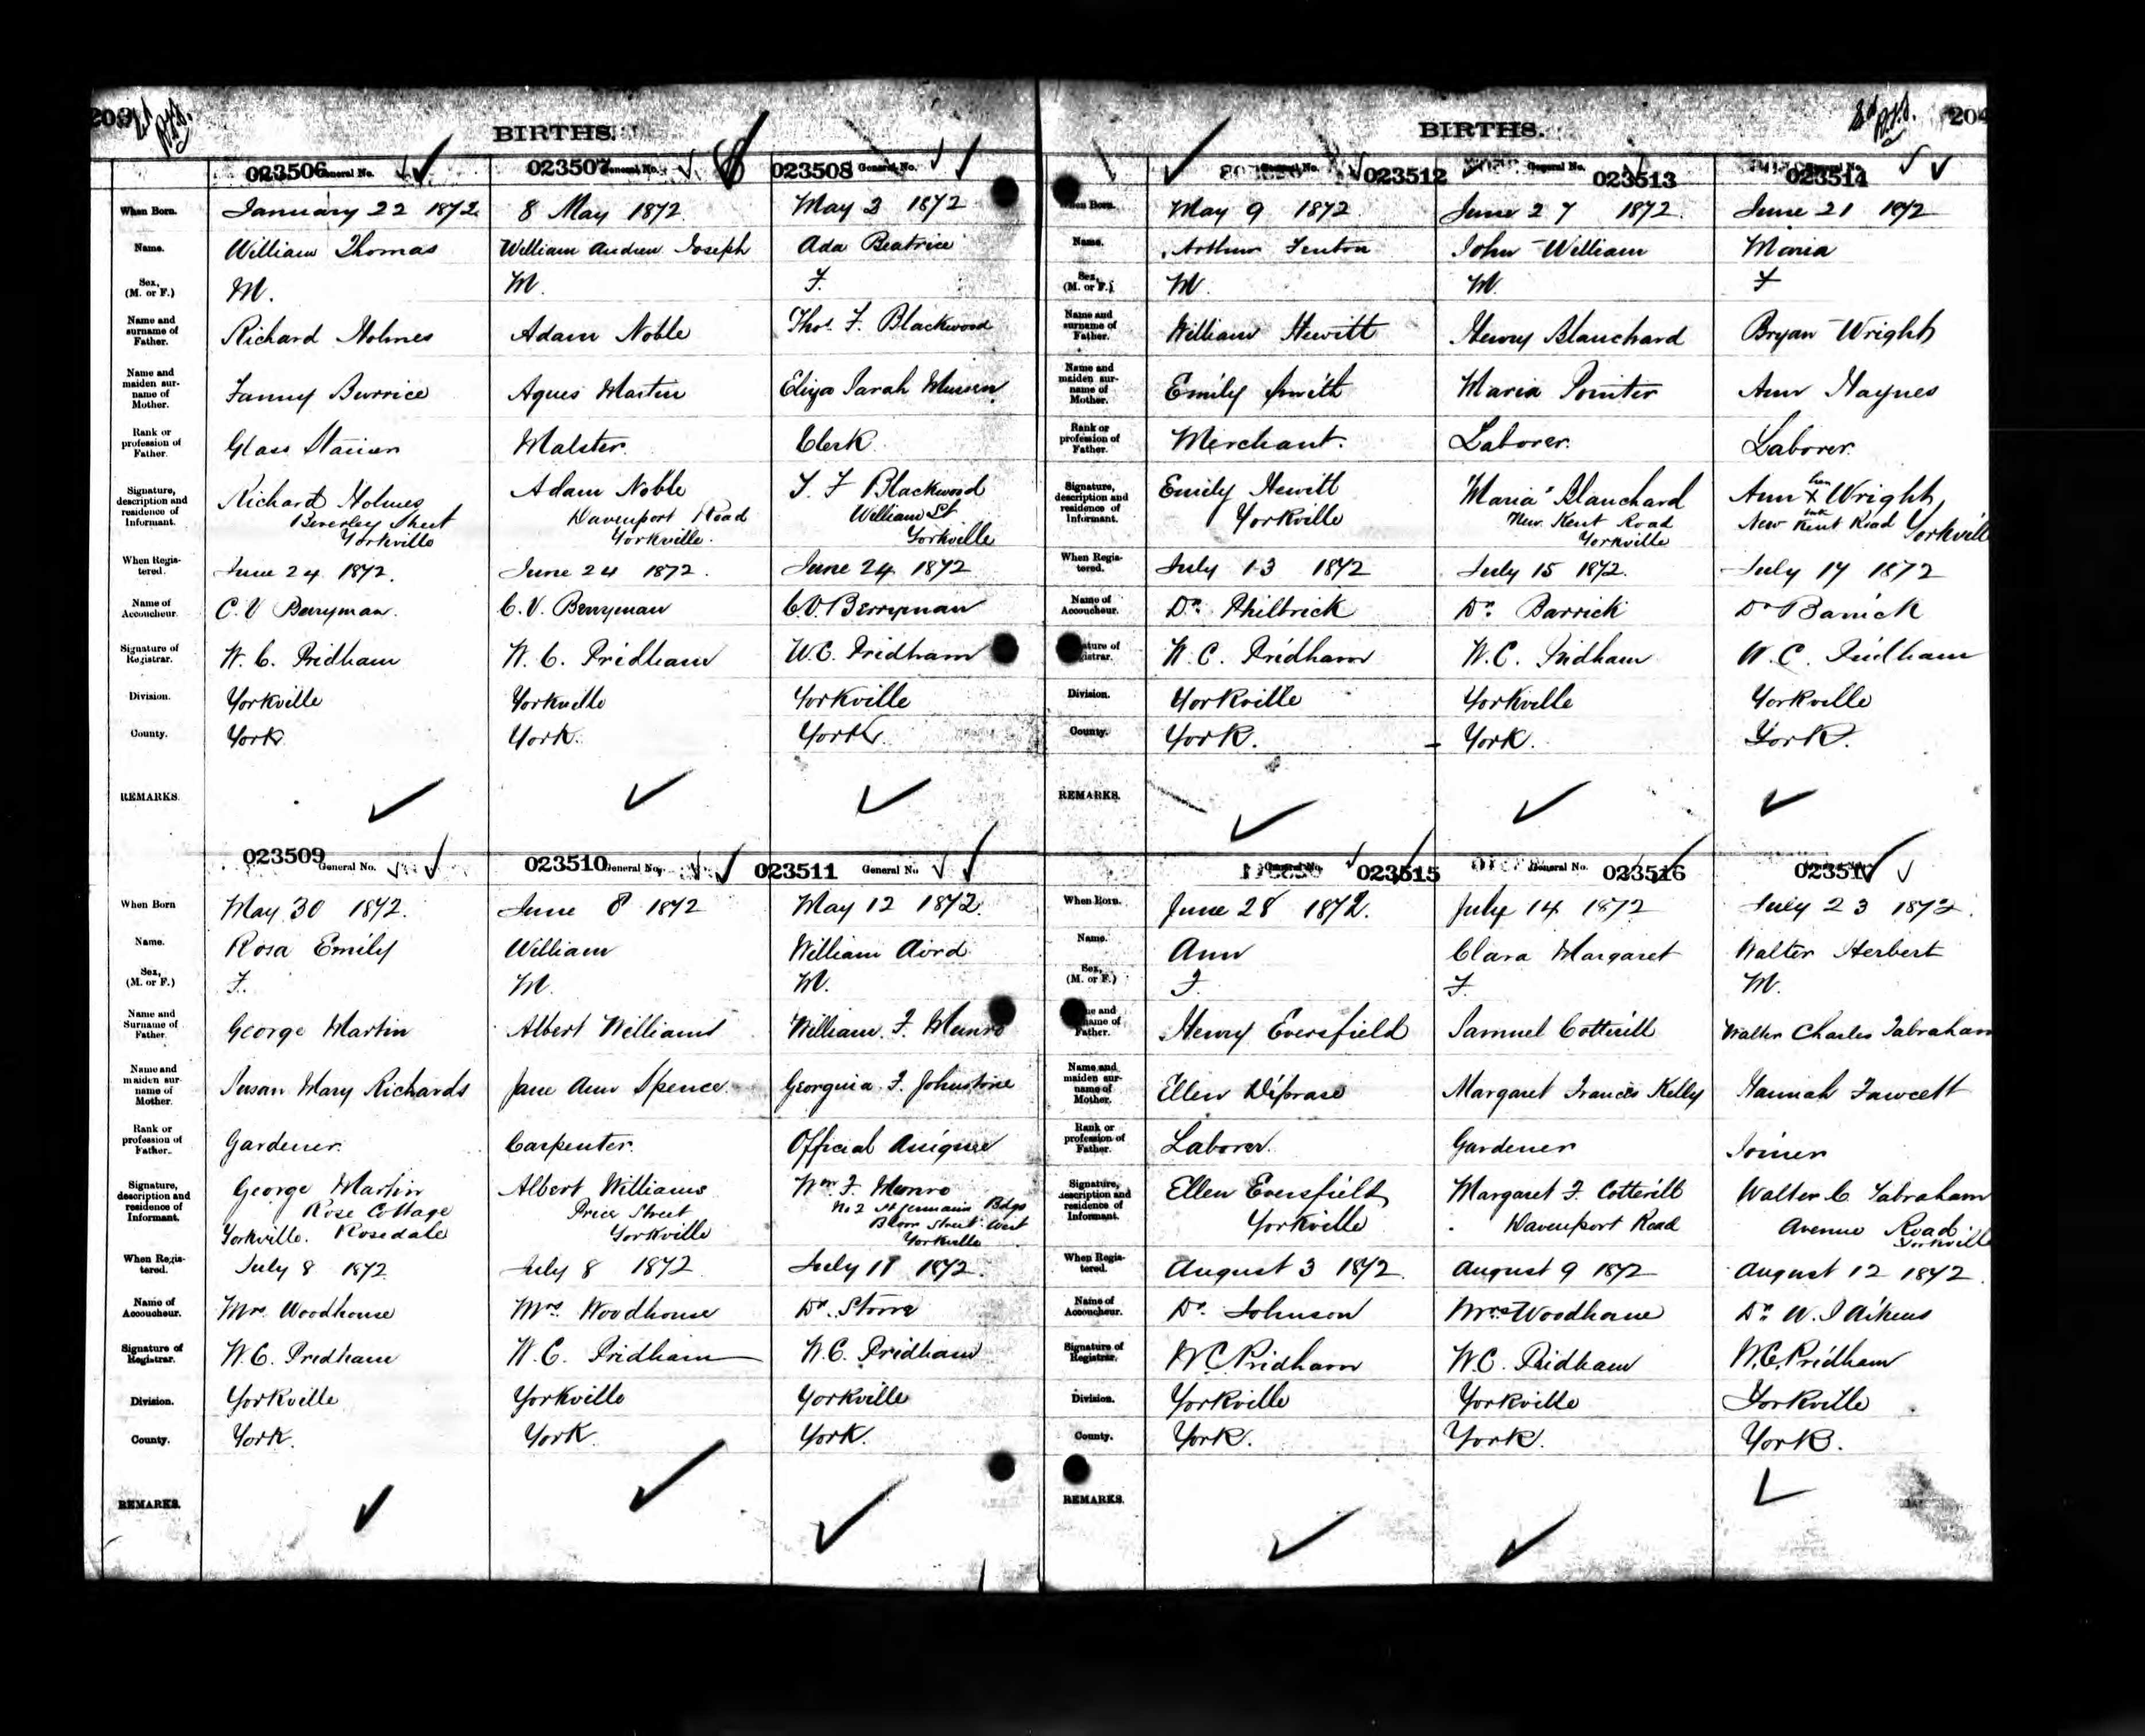 203
BIRTHS.
023506 General No.
023507 General No.
023508 General No.
When Born.
January 22 1872
8 May 1872
May 3 1872
Name.
William Thomas
William Andrew Joseph
Ada Beatrice
Sex, (M. or F.)
M.
M.
F.
Name and surname of Father.
Richard Holmes
Adam Noble
Thos. F. Blackwood
Name and maiden surname of Mother.
Fanny Burrice
Agnes Martin
Eliza Sarah
Rank or profession of Father.
Glass Stainer
Malster.
Clerk
Signature, description and residence of Informant.
Richard Holmes
Beverley Street
Yorkville
Adam Noble
Davenport Road
Yorkville.
T. F Blackwood
William St
Yorkville
When Registered.
June 24 1872.
June 24 1872.
June 24 1872
Name of Accoucheur.
C. V Berryman.
C. V. Berryman
C. V. Berryman
Signature of Registrar.
W. C. Pridham
W. C. Pridham
W. C. Pridham
Division.
Yorkville
Yorkville
Yorkville
County.
York
York.
York.
REMARKS.
023509 General No.
023510 General No.
023511 General No.
When Born
May 30 1872.
June 8 1872
May 12 1872.
Name.
Rosa Emily
William
William Aird
Sex, (M. or F.)
F.
M.
M.
Name and Surname of Father.
George Martin
Albert Williams
William. F. Munro
Name and maiden surname of Mother.
Susan Mary Richards
Jane Ann Spence
Georgina F. Johnstone
Rank or profession of Father.
Gardener.
Carpenter.
Official Assignee
Signature, description and residence of Informant.
George Martin
Rose Cottage
Yorkville. Rosedale
Albert Williams
Price Street
Yorkville
Wm F. Munro
No 2 St Germain Bdgs
Bloor Street West
Yorkville
When Registered.
July 8 1872
July 8 1872
July 11 1872.
Name of Accoucheur.
Mrs Woodhouse
Mrs Woodhouse
Dr.
Signature of Registrar.
W. C. Pridham
W. C. Pridham
W. C. Pridham
Division.
Yorkville
Yorkville
Yorkville
County.
York.
York.
York.
REMARKS.
204
BIRTHS.
General No. 023512
General No. 023513
023514
When Born.
May 9 1872
June 27 1872.
June 21 1872
Name.
Arthur Fenton
John William
Maria
Sex, (M. or F.)
M.
M.
F
Name and surname of Father.
William Hewitt
Henry Blanchard
Bryan Wright
Name and maiden surname of Mother.
Emily Smith
Maria Pointer
Ann Haynes
Rank or profession of Father.
Merchant.
Laborer.
Laborer.
Signature, description and residence of Informant.
Emily Hewitt
Yorkville
"Maria" Blanchard
New Kent Road
Yorkville
Ann her X Wright
New Kent Road Yorkville
When Registered.
July 13 1872
July 15 1872.
July 17 1872
Name of Accoucheur.
Dr. Philbrick
Dr. Barrick
Dr Barrick
Signature of Registrar.
W. C. Pridham
W. C. Pridham
W. C. Pridham
Division.
Yorkville
Yorkville
Yorkville
County.
York.
York.
York.
REMARKS.
General No. 023515
General No. 023516
023517
When Born.
June 28 1872.
July 14 1872
July 23 1872.
Name.
Ann
Clara Margaret
Walter Herbert
Sex, (M. or F.)
F.
F.
M.
Name and surname of Father.
Henry Eversfield
Samuel Cotterill
Walter Charles Tabraham
Name and maiden surname of Mother.
Ellen
Margaret Frances Kelly
Hannah Fawcett
Rank or profession of Father.
Laborer.
Gardener
Joiner
Signature, description and residence of Informant.
Ellen Eversfield
Yorkville
Margaret F. Cotterill
Davenport Road
Walter C Tabraham
Avenue Road
Yorkville
When Registered.
August 3 1872.
August 9 1872
August 12 1872.
Name of Accoucheur.
Dr. Johnson
Mrs Woodhouse
Dr W. T Aikens
Signature of Registrar.
W. C. Pridham
W. C. Pridham
W. C. Pridham
Division.
Yorkville
Yorkville
Yorkville
County.
York.
York.
York.
REMARKS.